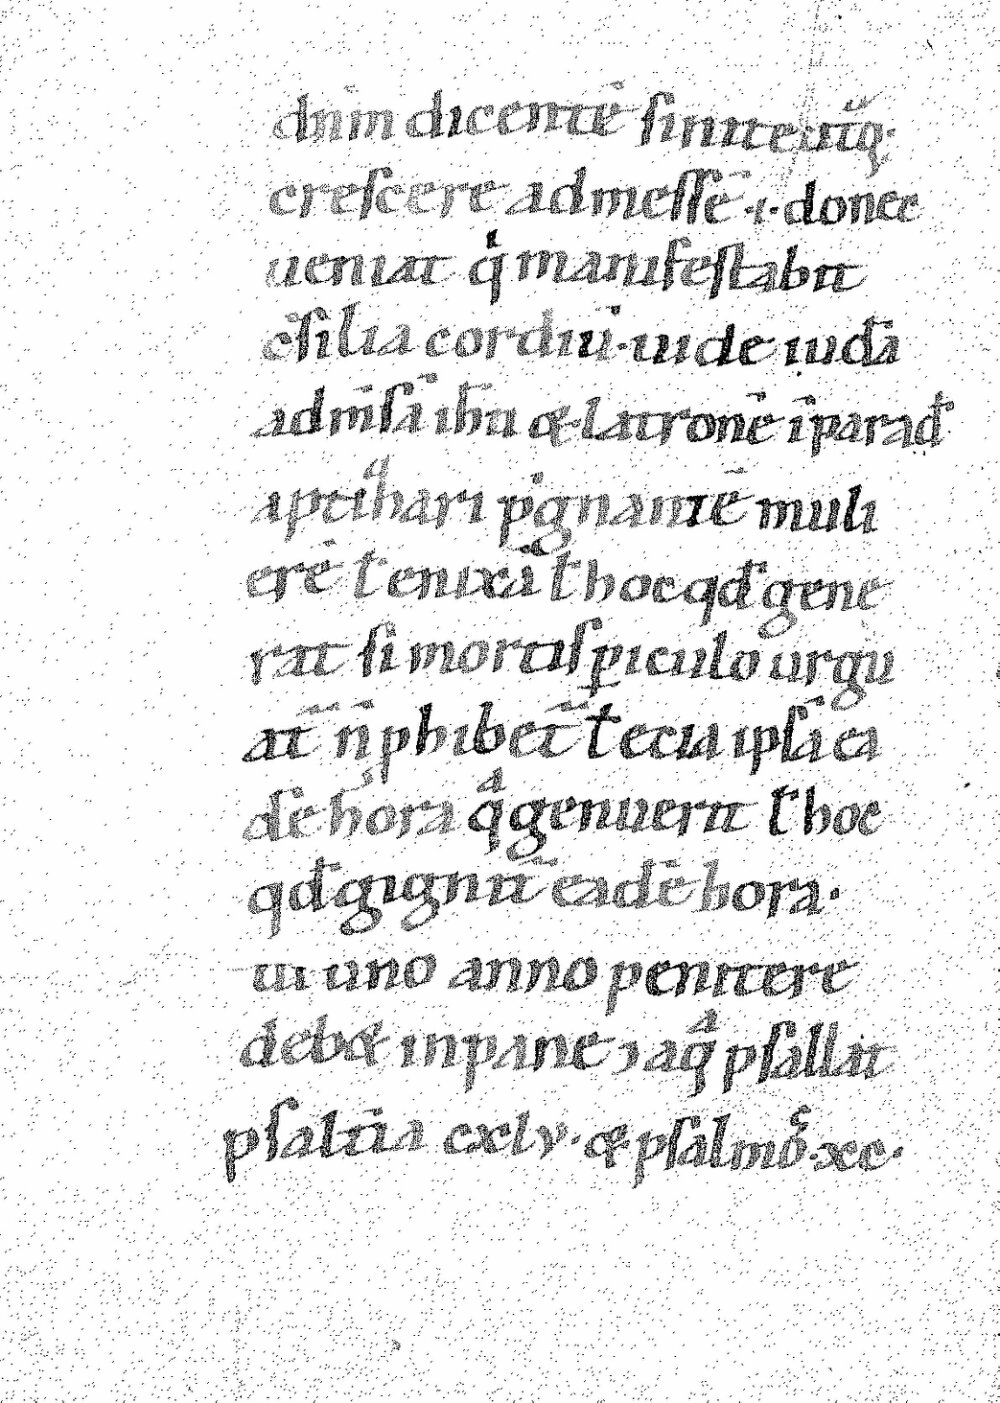 dnm̄ dicentē sinite utq̄·
crescere ad messē ·i· donec
ueniat q̍ manifestabit
c̄silia cordiū· uide iudā
ad m̄sā ih̄u & latronē ī parad̄
ı pti hari p̍gnantē muli
erē ł enixā ł hoc qd̄ gene
rat si mortis p̱iculo urgu
at̄ n̄ phibet̄ ł eciā ipsā ea
dē hora q̄ genuerit ł hoc
qd̄ gignit̄ eadē hora·
iıı uno anno penitere
deb& in pane ⁊ aq̄ psallat
psaltia cxlv· & psalmo᷒·xc·